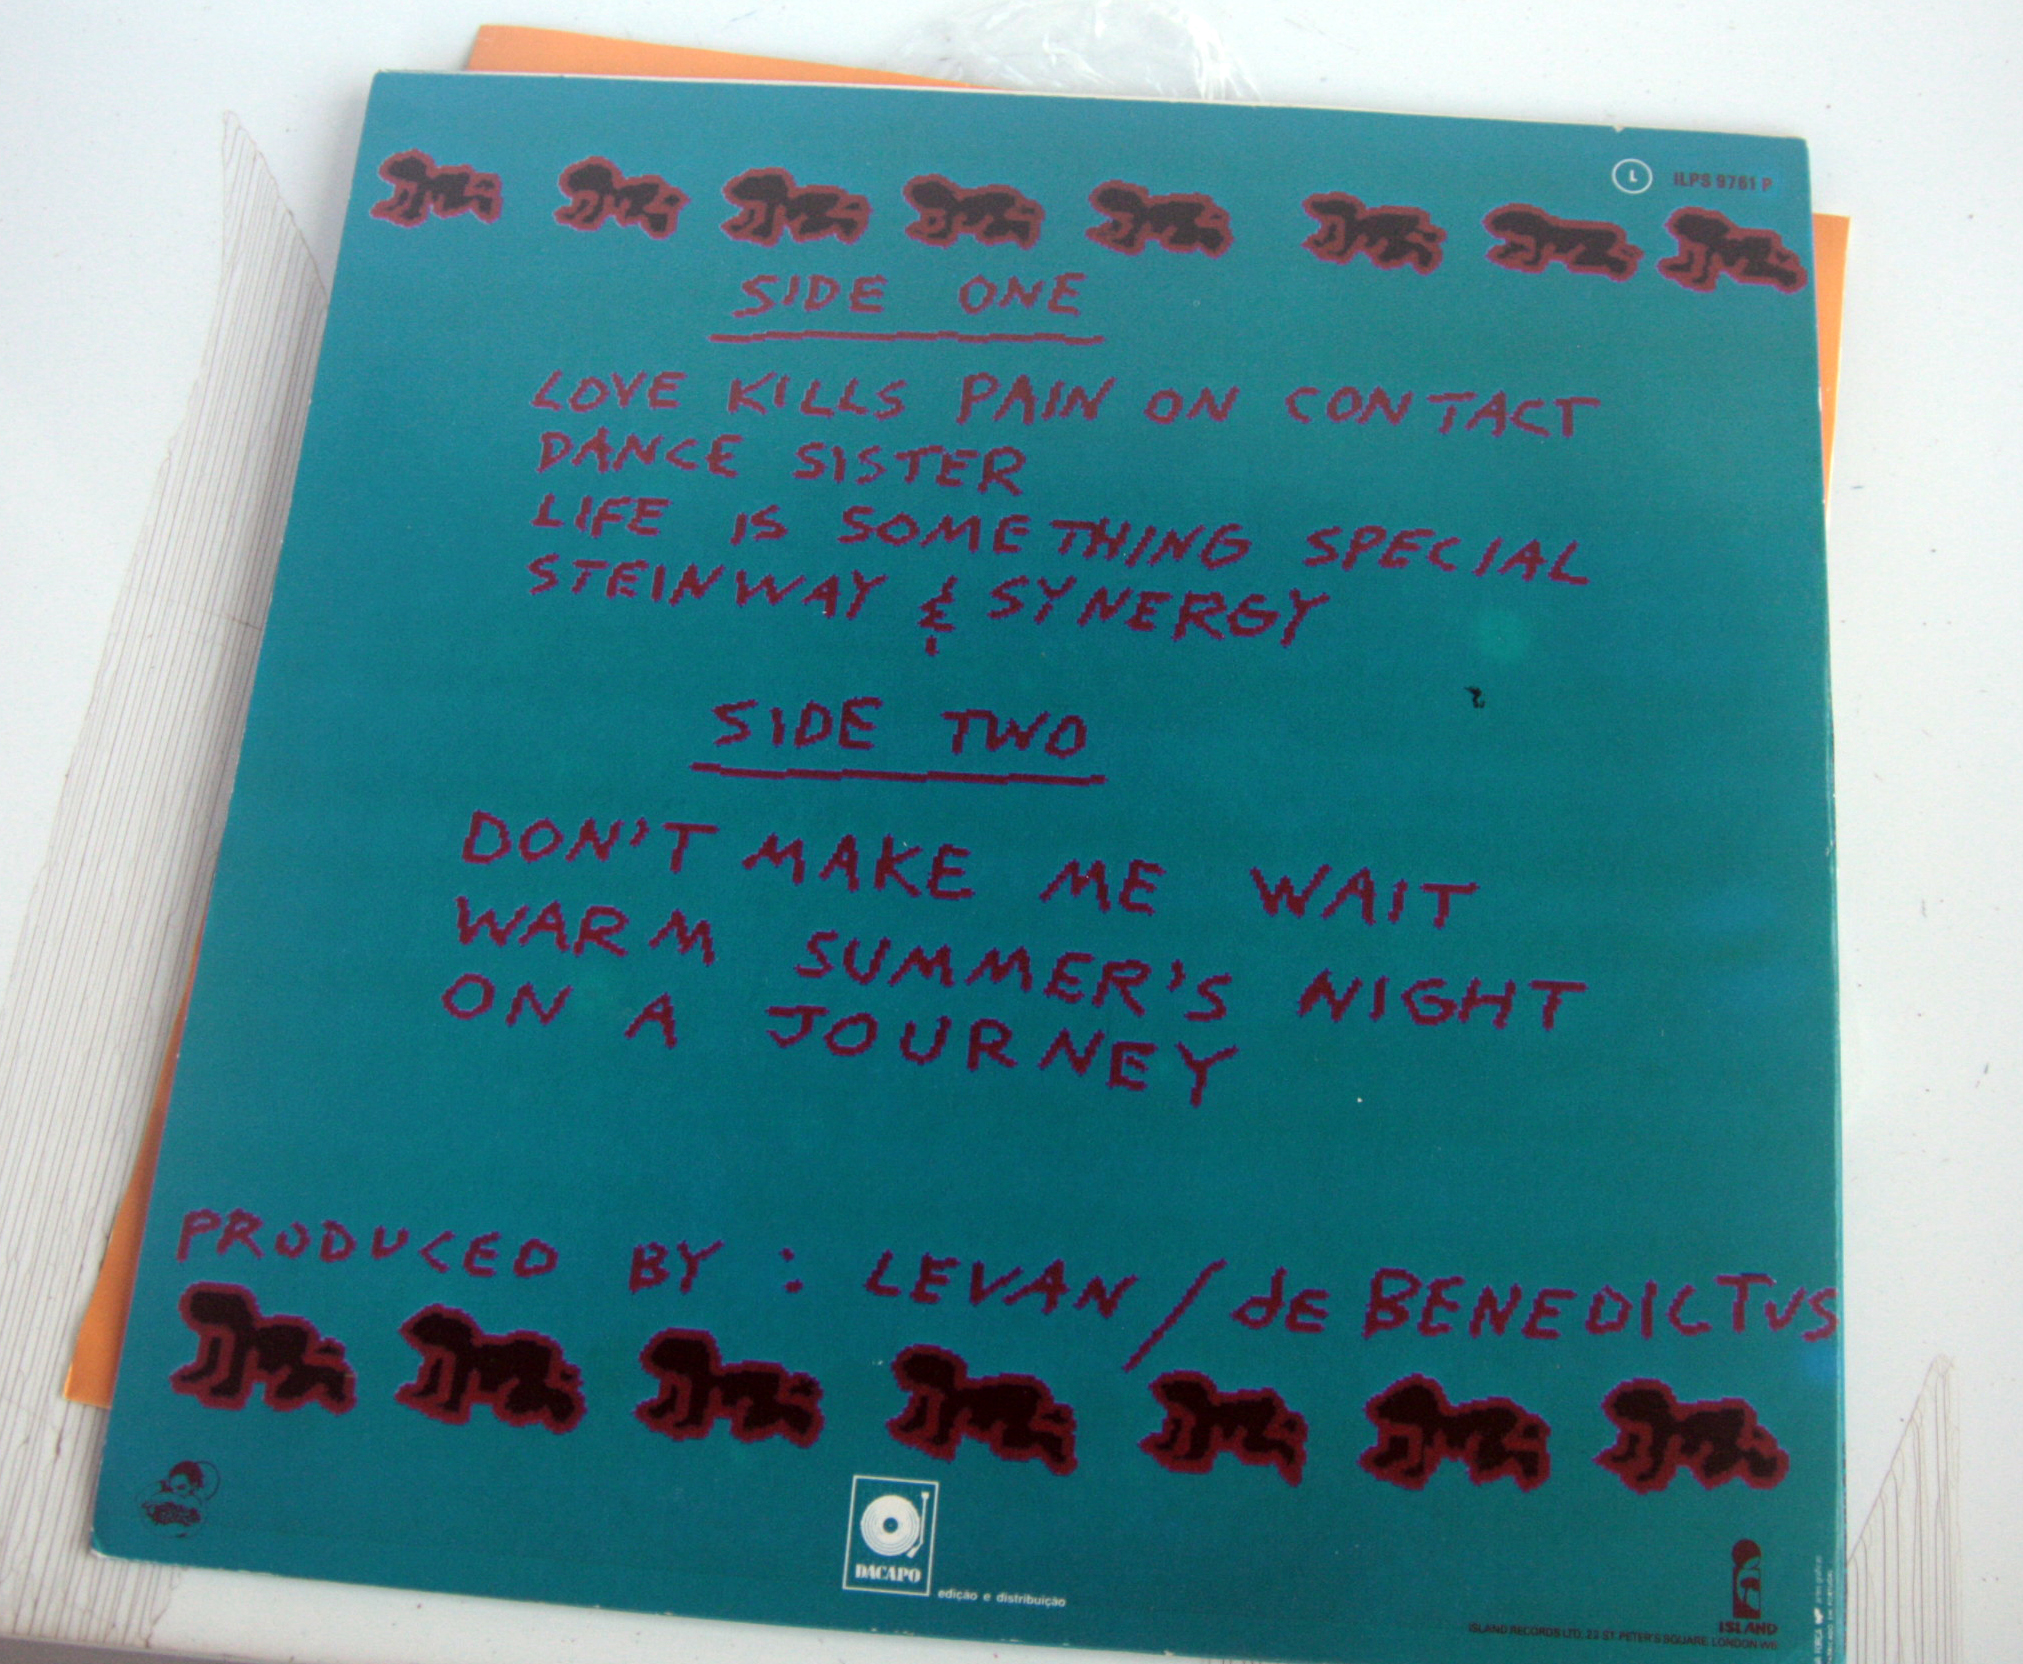 L ILPS 9761 P
SIDE ONE
LOVE KILLS PAIN ON CONTACT
DANCE SISTER
LIFE IS SOMETHING SPECIAL
STEINWAY & SYNERGY
SIDE TWO
DON'T MAKE ME WAIT
WARM SUMMER'S NIGHT
ON A JOURNEY
PRODUCED BY : LEVAN / dE BENEDICTUS
DACAPO
edição e distribuição
ISLAND
ISLAND RECORDS LTD, 22 ST. PETER'S SQUARE, LONDON W6